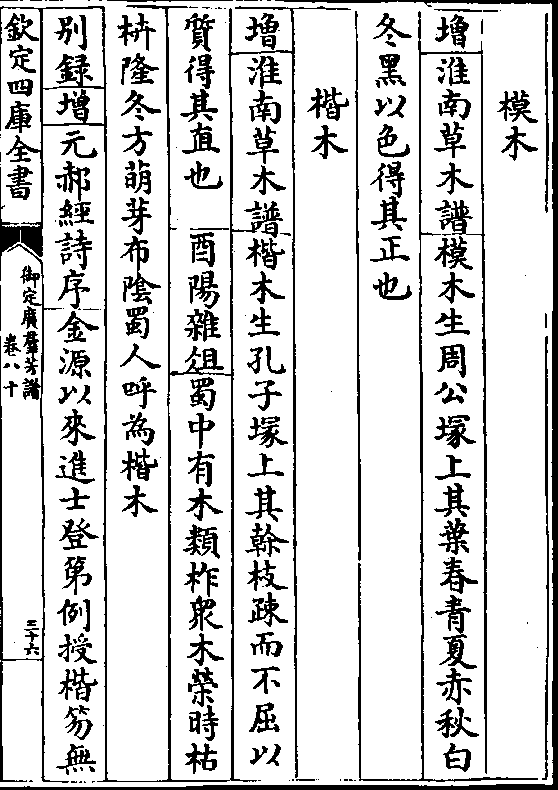 模木
增淮南草木譜模木生周公塚上其葉春青夏赤秋白
冬黑以色得其正也
楷木
增淮南草木譜楷木生孔子塚上其榦枝疎而不屈以
質得其直也　酉陽雜俎蜀中有木類柞衆木榮時枯
枿隆冬方萌芽布陰蜀人呼為楷木
別録增元郝經詩序金源以來進士登第例授楷笏無
欽定四庫全書
御定廣羣芳譜
卷八十
三十六